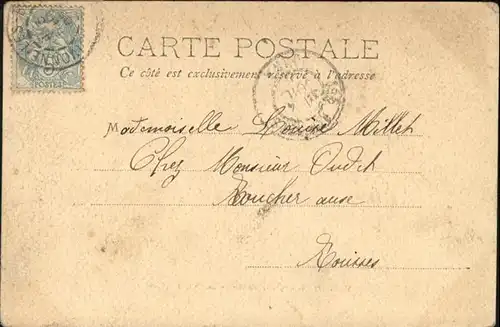 CARTE POSTALE
Ce côté est exclusivement réservé à l'adresse
Mademoiselle Louise Millet
Chez Monsieur Oudot
Boucher aux
Rousses
POSTES